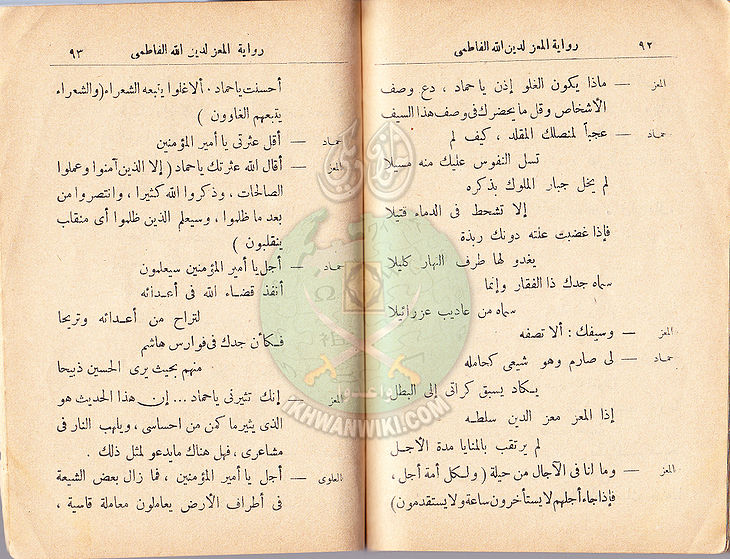 رواية المعز لدين الله الفاطمى ٩٢
المعز — ماذا يكون الغلو إذن يا حماد ، دع وصف
الأشخاص وقل ما يحضرك فى وصف هذا السيف
حماد — عجباً لمنصلك المقلد ، كيف لم
تسل النفوس عليك منه مسيلا
لم يخل جبار الملوك بذكره
إلا تشحط فى الدماء قتيلا
فإذا غضبت علته دونك ربذة
يغدو لها طرف النهار كليلا
سماه جدك ذا الفقار وإنما
سماه من عاديت عزرائيلا
المعز — وسيفك : ألا تصفه
حماد — لى صارم وهو شيعى كحامله
يكاد يسبق كراتى إلى البطل
إذا المعز معز الدين سلطه
لم يرتقب بالمنايا مدة الأجل
المعز — وما لنا فى الآجال من حيلة ( ولكل أمة أجل ،
فإذا جاء أجلهم لا يستأخرون ساعة ولا يستقدمون )
رواية المعز لدين الله الفاطمى ٩٣
أحسنت يا حماد . ألا غلوا يتبعه الشعراء ( والشعراء
يتبعهم الغاوون )
حماد — أقل عثرتى يا أمير المؤمنين
المعز — أقال الله عثرتك يا حماد ( إلا الذين آمنوا وعملوا
الصالحات ، وذكروا الله كثيرا ، وانتصروا من
بعد ما ظلموا ، وسيعلم الذين ظلموا أى منقلب
ينقلبون )
حماد — أجل يا أمير المؤمنين سيعلمون
أنفذ قضاء الله فى أعدائه
لتراح من أعدائه وتريحا
فكأن جدك فى فوارس هاشم
منهم بحيث يرى الحسين ذبيحا
المعز — إنك تثيرنى يا حماد ... إن هذا الحديث هو
الذى يثير ما كمن من احساسى ، ويلهب النار فى
مشاعرى ، فهل هناك ما يدعو لمثل ذلك .
العلوى — أجل يا أمير المؤمنين ، فما زال بعض الشيعة
فى أطراف الأرض يعاملون معاملة قاسية ،
IKHWANWIKI.COM